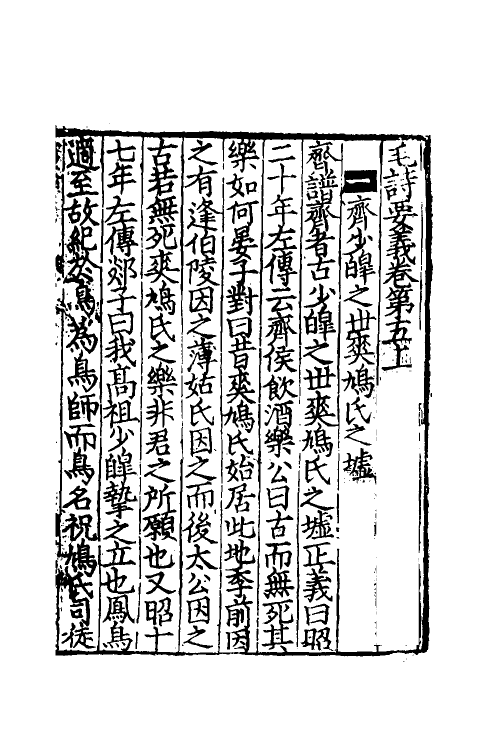 毛詩要義卷第五上
一齊少皥之世爽鳩氏之墟
齊譜齊者古少皥之世爽鳩氏之墟正義曰昭
二十年左傳云齊侯飲酒樂公曰古而無死其
樂如何晏子對曰昔爽鳩氏始居此地季前因
之有逢伯陵因之薄姑氏因之而後太公因之
古若無死爽鳩氏之樂非君之所願也又昭十
七年左傳郯子曰我高祖少皥摯之立也鳳鳥
適至故紀於鳥為鳥師而鳥名祝鳩氏司徒